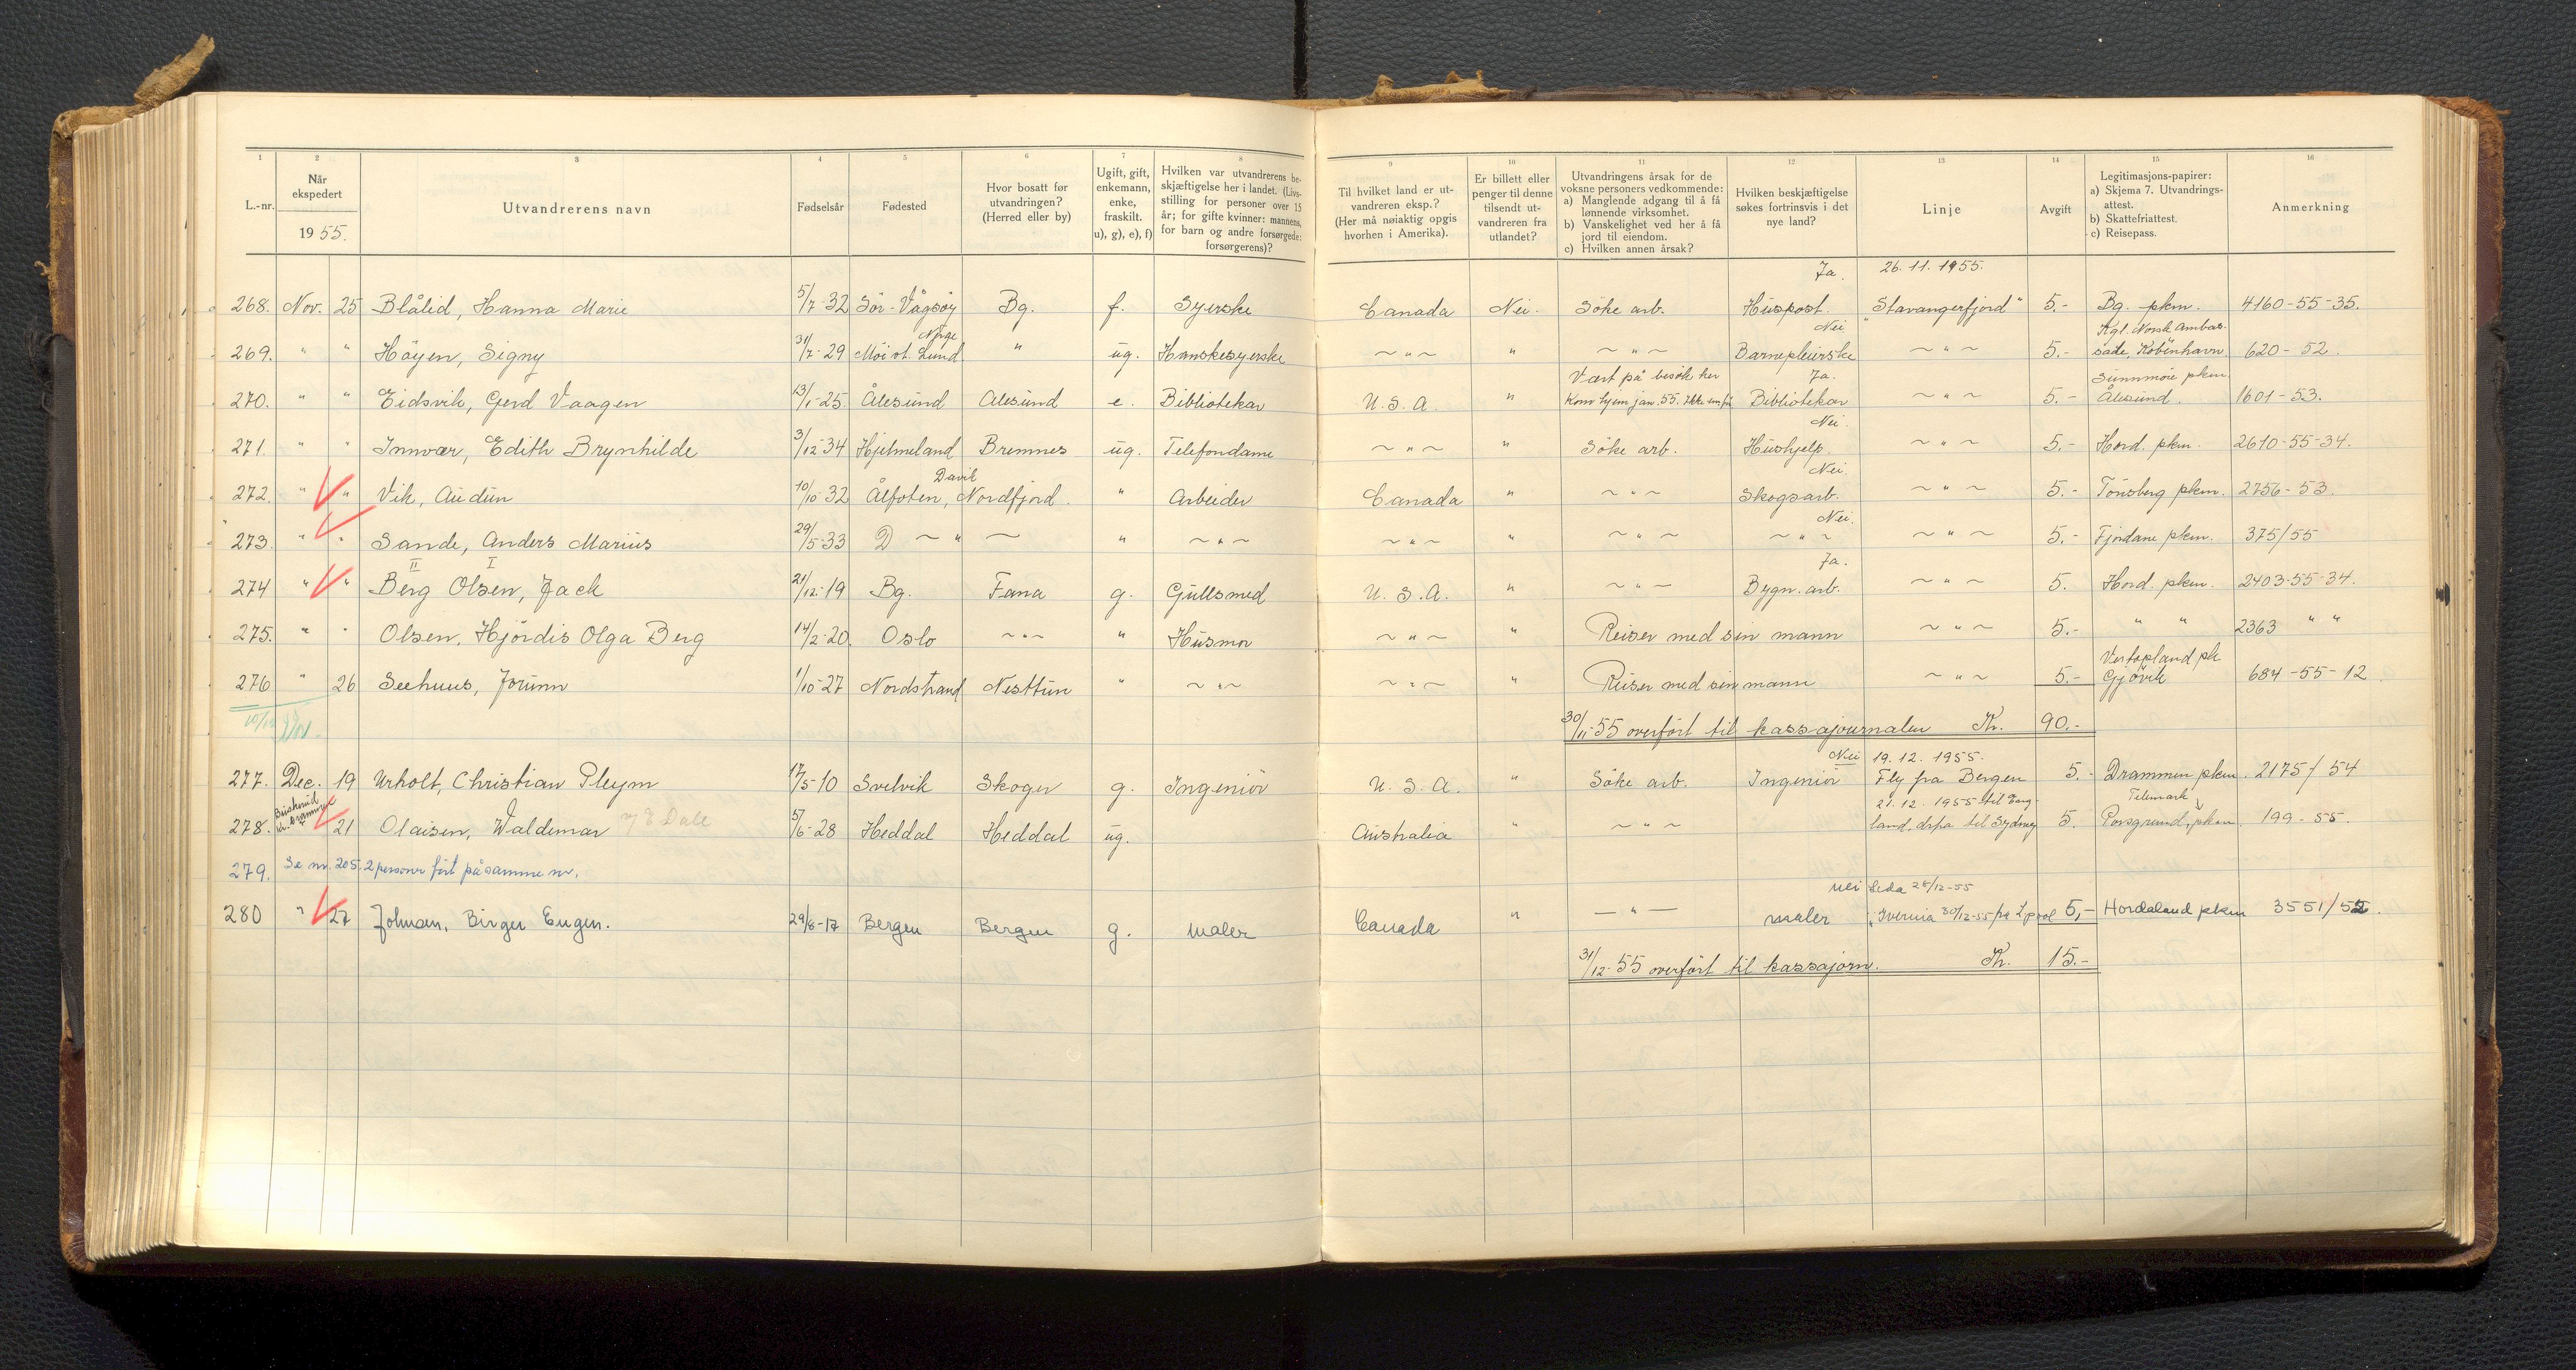 1 2 3 4 5 6 7 8 9 10 11 12 13 14 15 16
L.-nr.
Når ekspedert
1955.
Utvandrerens navn
Fødselsår
Fødested
Hvor bosatt før utvandringen? (Herred eller by)
Ugift, gift, enkemann, enke, fraskilt. u), g), e), f)
Hvilken var utvandrerens beskjæftigelse her i landet. (Livsstilling for personer over 15 år; for gifte kvinner: mannens, for barn og andre forsørgede: forsørgerens)?
Til hvilket land er utvandreren eksp.? (Her må nøiaktig opgis hvorhen i Amerika).
Er billett eller penger til denne tilsendt utvandreren fra utlandet?
Utvandringens årsak for de voksne personers vedkommende: a) Manglende adgang til å få lønnende virksomhet. b) Vanskelighet ved her å få jord til eiendom. c) Hvilken annen årsak?
Hvilken beskjæftigelse søkes fortrinsvis i det nye land?
Linje
Avgift
Legitimasjons-papirer: a) Skjema 7. Utvandringsattest. b) Skattefriattest. c) Reisepass.
Anmerkning
Ja. 26.11.1955.
268. Nov. 25 Blålid, Hanna Marie 5/7-32 Sör-Vågsöy Bg. f. Syerske Canada Nei. Söke arb. Huspost. "Stavangerfjord" 5.- Bg. pkm. 4160-55-35.
Norge Nei Kgl. Norsk Ambas-
269. " " Höyen, Signy 31/7-29 Moi st. Lund " ug. Hanskesyerske ~"~ " ~"~ Barnepleierske ~"~ 5.- sade, Köbenhavn 620-52.
Vært på besök her Ja. Sunnmöre pkm.
270. " " Eidsvik, Gerd Vaagen 13/1-25. Ålesund Ålesund e. Bibliotekar U.S.A. " Kom hjem jan. 55. Bibliotekar ~"~ 5.- Ålesund. 1601-53.
Nei.
271. " " Innvær, Edith Brynhilde 3/12-34 Hjelmeland Bremnes ug. Telefondame ~"~ " Söke arb. Hushjelp. ~"~ 5.- Hord. pkm. 2610-55-34.
Davik Nei.
272. " " Vik, Audun 10/10-32 Ålfoten, Nordfjord. " Arbeider Canada " ~"~ Skogsarb. ~"~ 5.- Tönsberg pkm. 2756-53.
Nei.
273. " " Sande, Anders Marius 29/5-33 D ~"~ " ~"~ ~"~ " ~"~ ~"~ ~"~ 5.- Fjordane pkm. 375/55
II I Ja.
274 " " Berg Olsen, Jack 21/12-19 Bg. Fana g. Gullsmed U.S.A. " ~"~ Bygn. arb. ~"~ 5. Hord. pkm. 2403-55-34.
275. " " Olsen, Hjördis Olga Berg 14/2-20. Oslo ~"~ " Husmor ~"~ " Reiser med sin mann ~"~ 5.- " " 2363 " "
Vestopland pk
276 " 26 Seehuus, Jorunn 1/10-27 Nordstrand Nesttun " ~"~ ~"~ " Reiser med sin mann ~"~ 5.- Gjövik 684-55-12.
30/11-55 overfört til kassajournalen Kr. 90.-
Nei 19.12.1955.
277. Dec. 19 Urholt, Christian Pleym 17/5-10 Svelvik Skoger g. Ingeniör U.S.A. " Söke arb. Ingeniör Fly fra Bergen 5.- Drammen pkm. 2175/54
21.12.1955 til Eng- Telemark
278. 21 Olaisen, Waldemar 5/6-28 Heddal Heddal ug. Australia " ~"~ land, drfra til Sydney 5. Porsgrund, pkm. 199-55.
279. Se nr. 205. 2 personer fört på samme nr.
nei Leda 28/12-55
280 " 27 Johnsen, Birger Eugen. 29/8-17 Bergen Bergen g. Maler Canada " —"— maler 30/12-55 fra L.pool 5,- Hordaland pkm 3551/52.
31/12-55 overfört til kassajorn. Kr. 15.-